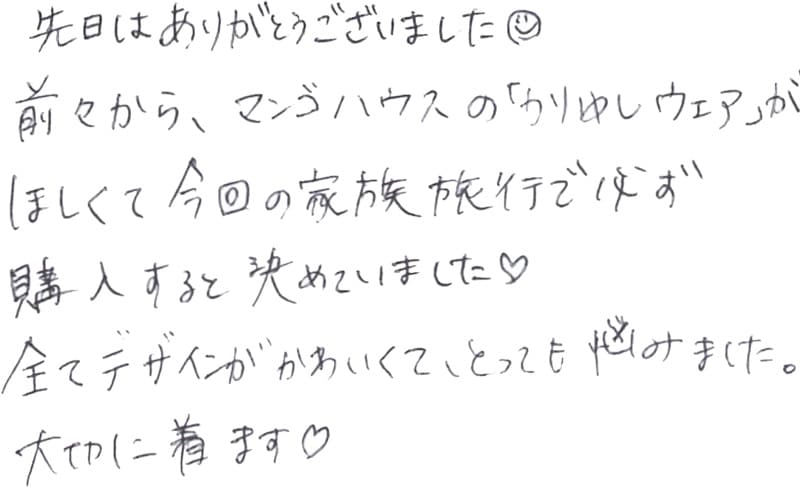 先日はありがとうございました☺
前々から、マンゴハウスの「かりゆしウェア」が
ほしくて今回の家族旅行で必ず
購入すると決めていました♡
全てデザインがかわいくて、とっても悩みました。
大切に着ます♡